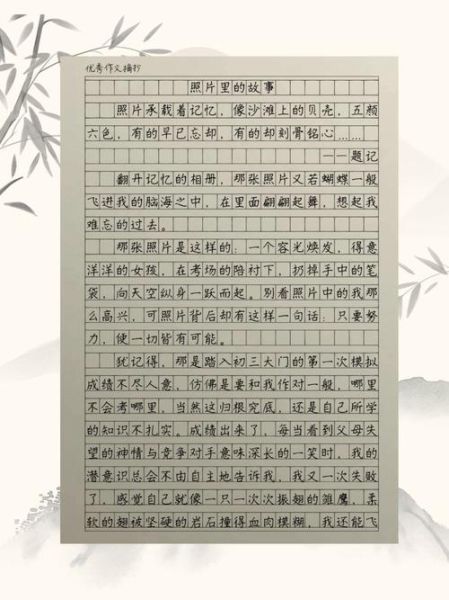 优秀作文摘抄
照片里的故事
照片承载着记忆，像沙滩上的贝壳，五颜
六色，有的早已忘却，有的却刻骨铭心……
——题记
翻开记忆的相册，那张照片又若蝴蝶一般
飞进我的脑海之中，在里面翩翩起舞，想起我
难忘的过去。
那张照片是这样的：一个容光焕发，得意
洋洋的女孩，在考场的陪衬下，扔掉手中的笔
袋，向天空纵身一跃而起。别看照片中的我那
么高兴，可照片背后却有这样一句话：只要努
力，使一切皆有可能。
犹记得，那是踏入初三大门的第一次模拟
成绩不尽人意，仿佛是要和我作对一般，哪里
不会考哪里，当然这归根究底，还是自己所学
的知识不扎实。成绩出来了，每当看到父母失
望的神情与竞争对手意味深长的一笑时，我的
潜意识总会不由自主地告诉我，我又一次失败
了，感觉自己就像一只一次次振翅的雏鹰，柔
软的翅被坚硬的岩石撞得血肉模糊，我还能飞